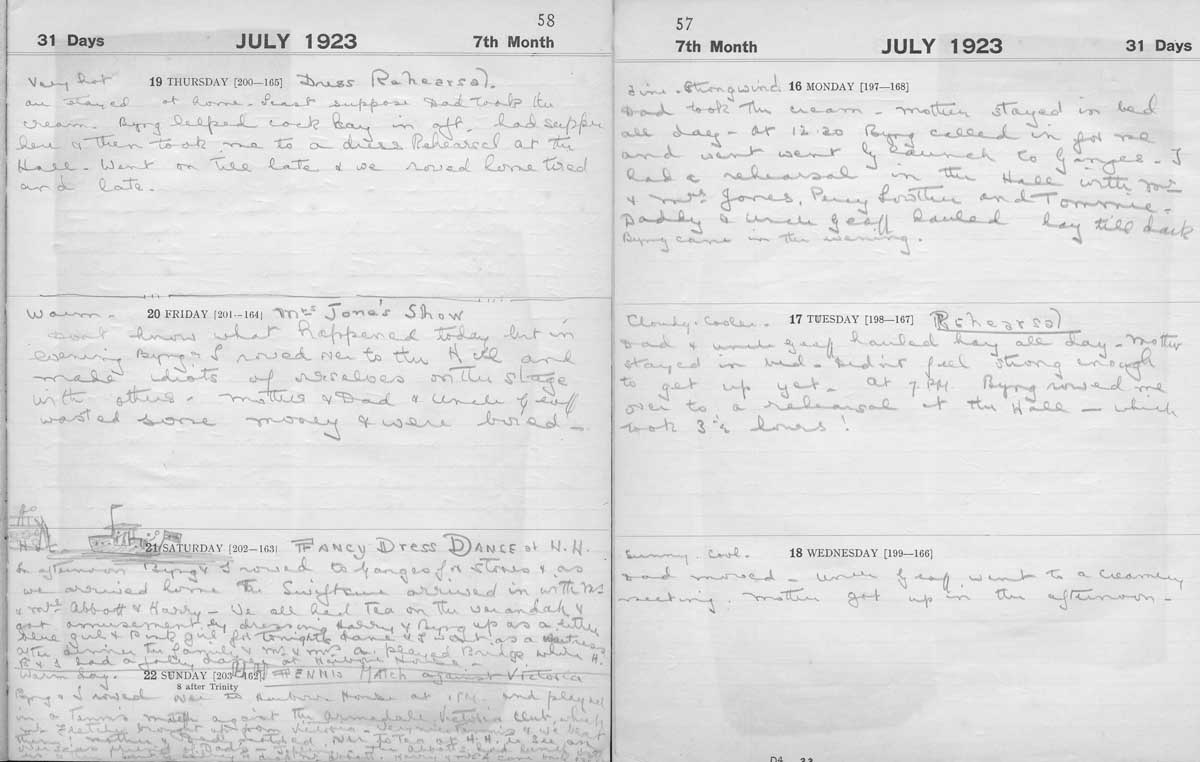 58
31 Days JULY 1923 7th Month
Very hot 19 THURSDAY [200—165] Dress Rehearsal.
stayed at home. Least suppose Dad took the
cream. Byng helped cock hay in aft. had supper
here & then took me to a dress Rehearsal at the
Hall. Went on till late & we rowed home tired
and late.
Warm. 20 FRIDAY [201—164] Mrs Jone's Show
Dont know what happened today but in
evening Byng & I rowed over to the Hall and
made idiots of ourselves on the stage
with others. Mother & Dad & Uncle Geoff
wasted some money & were bored —
Hot 21 SATURDAY [202—163] FANCY Dress DANCE at H.H.
In afternoon Byng & I rowed to Ganges for stores & as
we arrived home the Swiftsure arrived in with Mr
& Mrs Abbott & Harry — We all had Tea on the verandah &
got amusement by dressing Harry & Byng up as a little
blue girl & Pink girl for tonights dance & I went as a waitress
After dinner the family & Mr & Mrs A. played Bridge while H.
B & I had a jolly dance at Harbour House —
Warm day. 22 SUNDAY [203—162] TENNIS MATCH against Victoria
8 after Trinity
Byng & I rowed over to Harbour House at 1 PM and played
in a Tennis match against the Armadale Victoria Club, which
brought up from Victoria & we beat
Mother & Dad over to Tea at H.H. to see an
Dad's The Abbotts had
57
7th Month JULY 1923 31 Days
Fine. Strong wind 16 MONDAY [197—168]
Dad took the cream — Mother stayed in bed
all day — At 12.20 Byng called in for me
and went went by Launch to Ganges. I
had a rehearsal in the Hall with Mr
& Mrs Jones, Percy Lowther and Tommie.
Daddy & Uncle Geoff hauled hay till dark
Byng came in the evening.
Cloudy. Cooler. 17 TUESDAY [198—167] Rehearsal
Dad & Uncle Geoff hauled hay all day — Mother
stayed in bed — didn't feel strong enough
to get up yet. At 7 P.M. Byng rowed me
over to a rehearsal at the Hall — which
took 3½ hours!
Sunny. Cool. 18 WEDNESDAY [199—166]
Dad mowed — Uncle Geoff went to a Creamery
meeting. Mother got up in the afternoon —